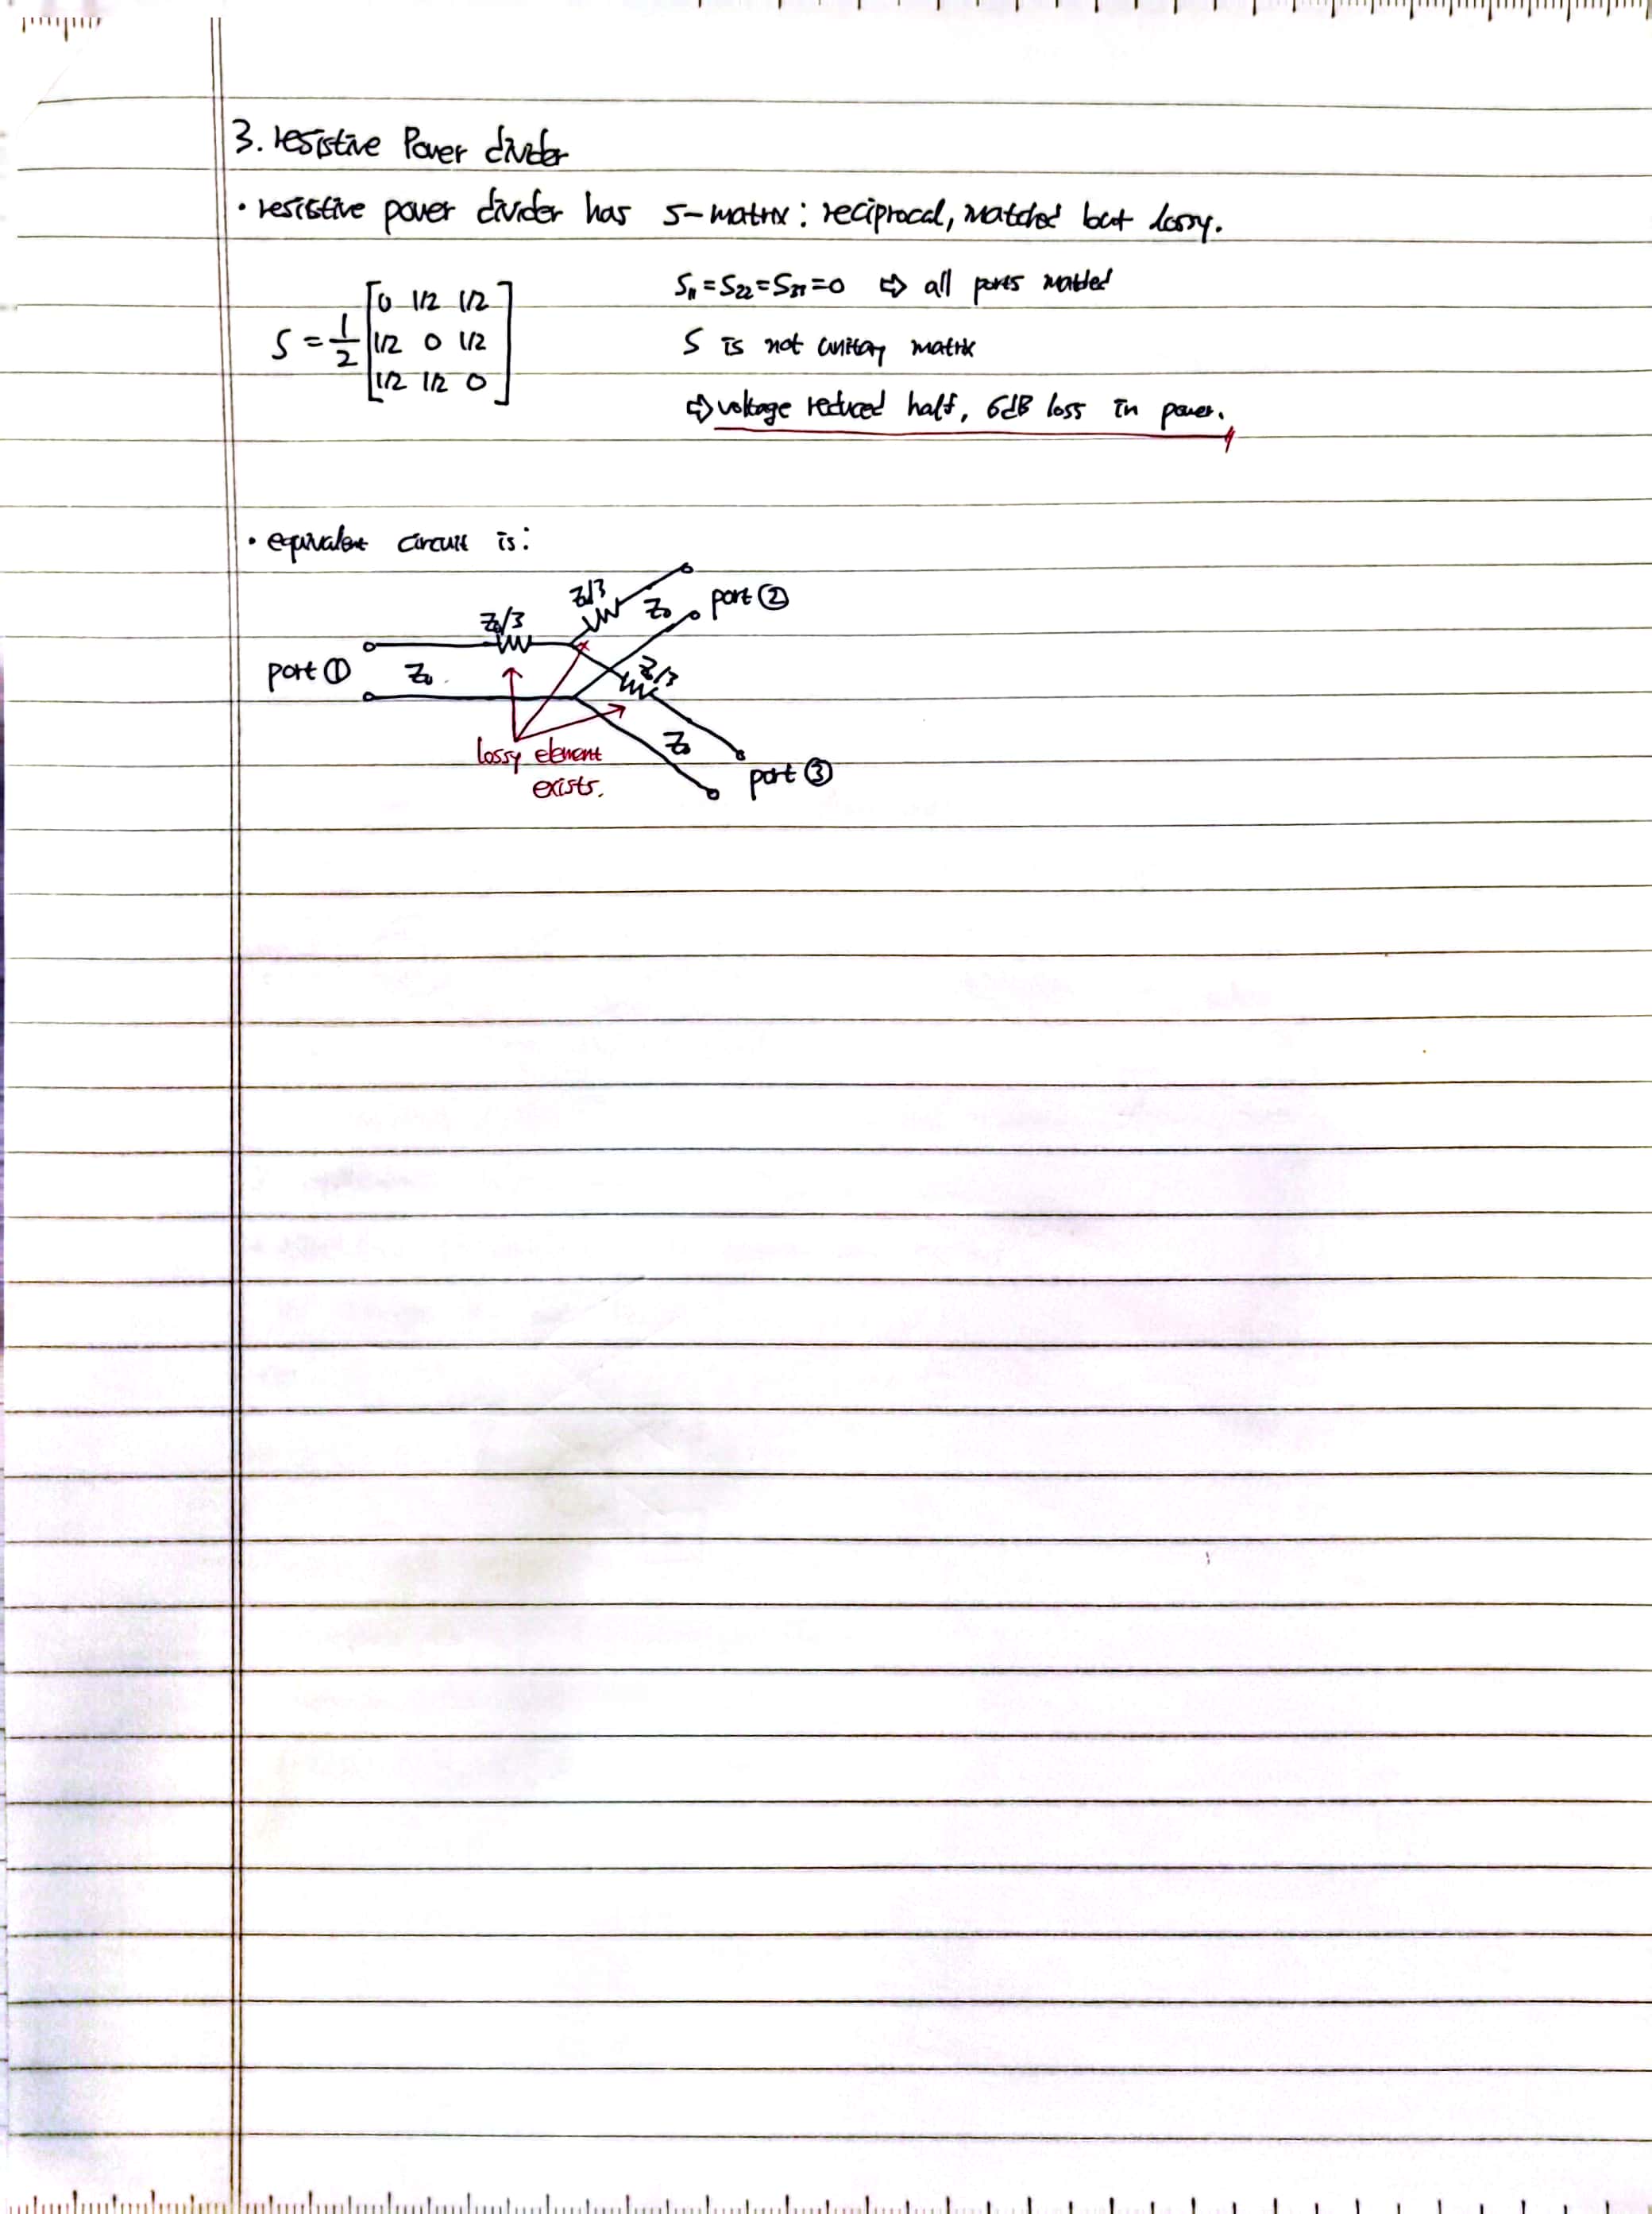 3. resistive Power divider
• resistive power divider has S-matrix: reciprocal, matched but lossy.
S = 1/2 [0 1/2 1/2
1/2 0 1/2
1/2 1/2 0]
S11 = S22 = S33 = 0 ⇨ all ports matched
S is not unitary matrix
⇨ voltage reduced half, 6dB loss in power.
• equivalent circuit is:
Z0/3
Z0
port ②
Z0/3
port ①
Z0
Z0/3
Z0
lossy element
exists.
port ③